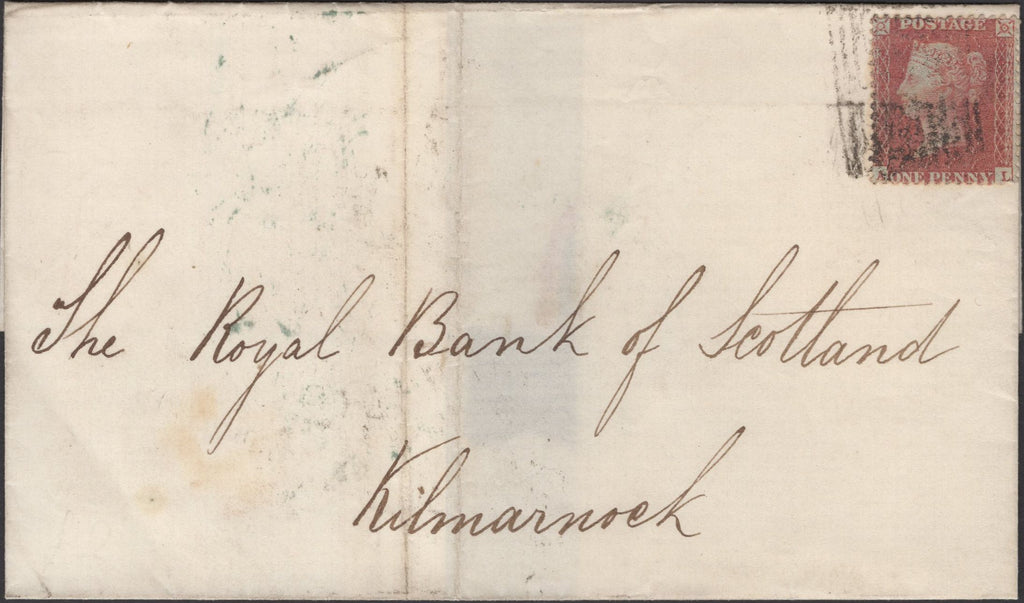 POSTAGE
ONE PENNY L
The Royal Bank of Scotland
Kilmarnock